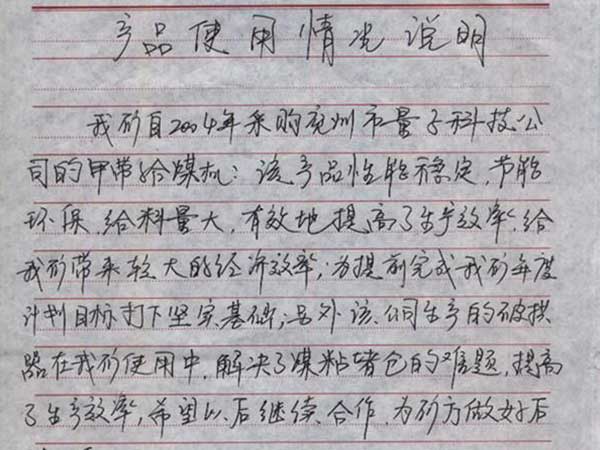 产品使用情况说明
我矿自2004年采购兖州市量子科技公
司的甲带给煤机:该产品性能稳定,节能
环保,给料量大,有效地提高了生产效率,给
我矿带来较大的经济效率;为提前完成我矿年度
计划目标打下坚实基础;另外该公司生产的破拱
器在我矿使用中,解决了煤粘堵仓的难题,提高
了生产效率,希望以后继续合作,为矿方做好后